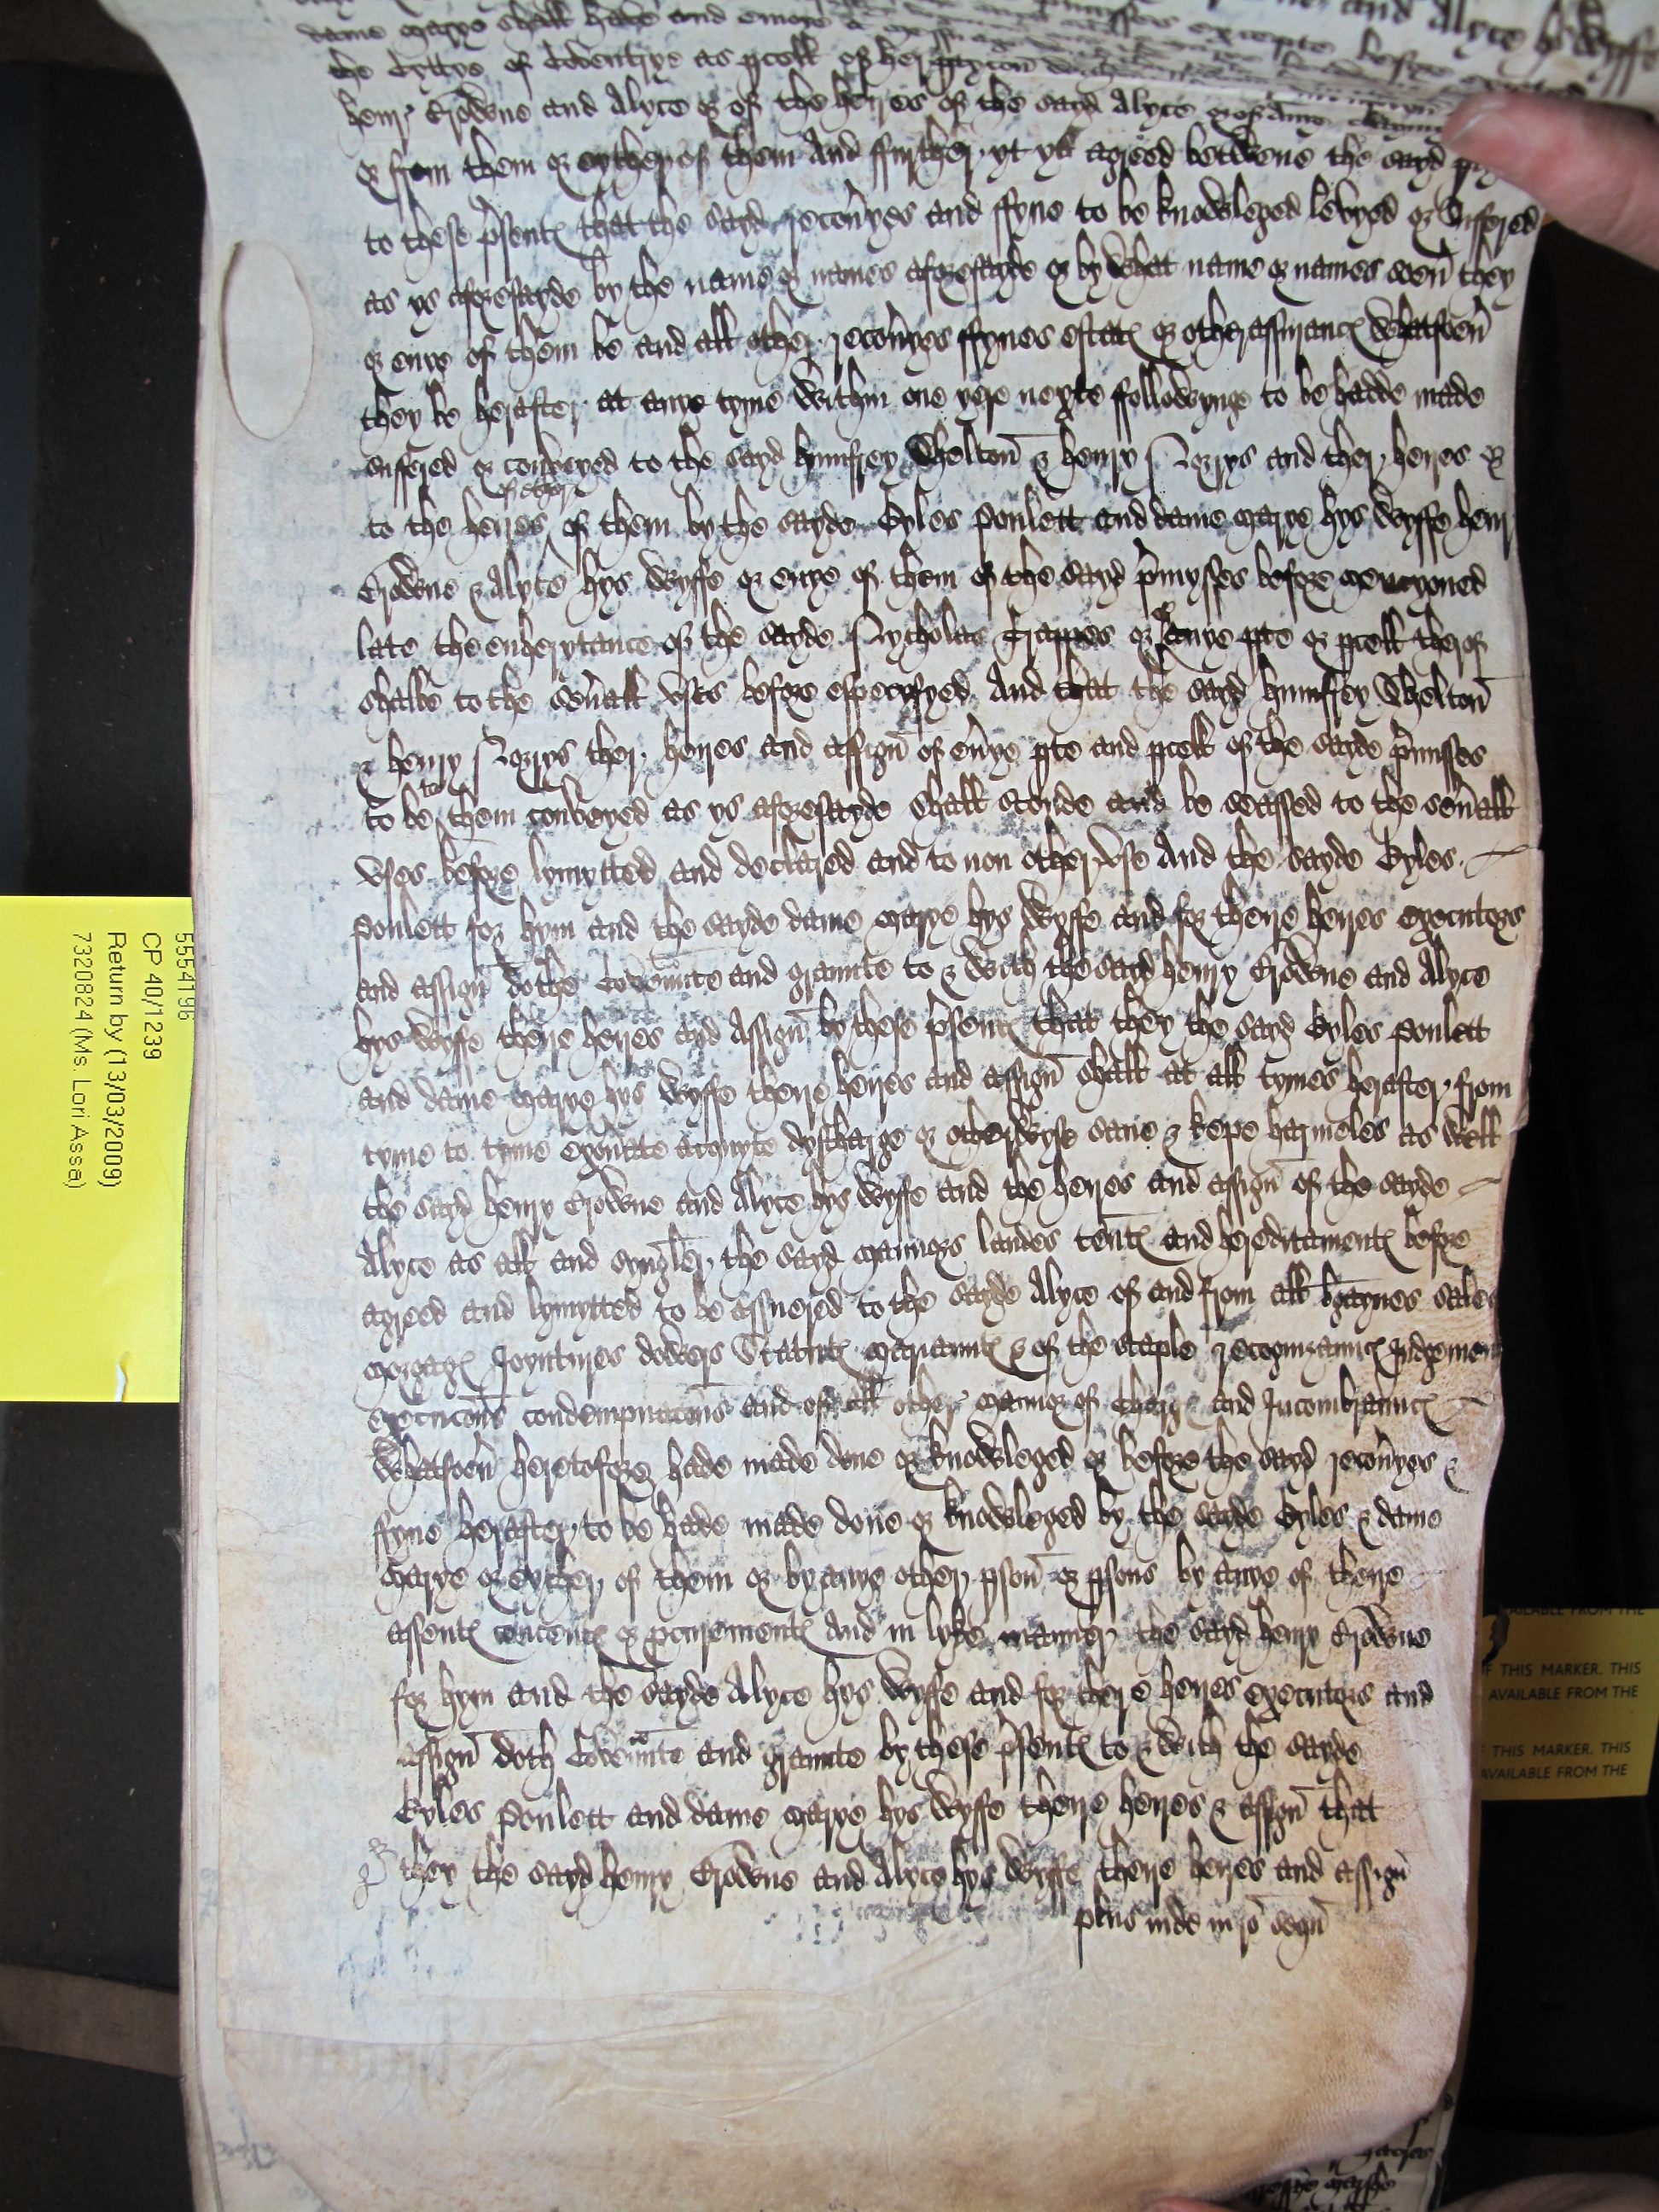 and Alyce hys Wyffe
dame Marye shall have and enioye a messuage premisses excepte before excepted
the Cyttye of Coventrye as pcell of her
henr' Crowne and Alyce & of the heyres of the sayd Alyce
or from them or eyther of them And ffurther yt ys agreed betwene the sayd
to these psent that the sayd recouyes and ffyne to be knowleged levyed or suffered
as ys aforesayde by the name or names aforesayde or by what name or names oeu they
or eurye of them be and all other recouyes ffynes estat or other assuranc Whatsoeu
they be herafter at anye tyme within one yere nexte ffollowynge to be hadde made
suffered or conveyed to the sayd humfrey Shelton & henry Norrys and ther heyres or
of ether
to the heyres of them by the sayde Gyles poulett and dame Marye hys wyffe henr
Crowne & Alyce hys wyffe or eurye of them of the sayd pmysses before mencyoned
late the enherytance of the sayde Nycholas Trappes or of anye pte or pcell therof
shalbe to the seuall vses before especyfyed And that the sayd humfrey Shelton
& henry Norrys ther heyres and assign of eu'ye pte and pcell of the sayde pmisses
to
to be them conveyed as ys aforesayde shall stonde and be seassed to the seuall
vses before lymytted and declared and to non other vse And the sayde Gyles
poulett for hym and the sayde dame Marye hys wyffe and for theyre heyres executors
and assign dothe Covennte and graunte to & with the sayd henry Crowne and Alyce
hys wyffe theyre heyres and Assign by these psent that they the sayd Gyles poulett
and dame Marye hys wyffe theyre heyres and assign shall at all tymes herafter from
tyme to tyme exonrate acquyte dyscharge or otherwyse saue & kepe harmeles as well
the sayd henry Crowne and Alyce hys wyffe and the heyres and assign of the sayde
Alyce as all and syngler the sayd mannors landes tent and hereditament before
agreed and lymytted to be assuered to the sayde Alyce of and from all bgaynes sales
morgag Joyntures dowers Statut marcannt & of the staple recognizaunc Judgement
execucons condempnacons and of all other mannor of charg and Incombraunc
Whatsoeu heretofore hade made done or knowleged or before the sayd recouyes &
ffyne herafter to be hade made done or knowleged by the sayde Gyles & dame
Marye or eyther of them or by anye other pson or psons by anye of theyre
assent concent or pcurement And in lyke manner the sayd henry Crowne
for hym and the sayde Alyce hys wyffe and for theyre heyres executors and
assign doth Covennte and graunte by these psent to & with the sayde
Gyles poulett and dame Marye hys wyffe theyre heyres & assign that
they the sayd henry Crowne and Alyce hys wyffe theyre heyres and assign
plus inde in ro segu
5554196
CP 40/1239
Return by (13/03/2009)
7320824 (Ms. Lori Assa)
AILABLE FROM THE
F THIS MARKER. THIS
AVAILABLE FROM THE
THIS MARKER. THIS
AVAILABLE FROM THE